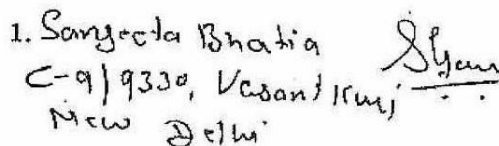 1. Sangeeta Bhatia
C-9/9330, Vasant Kunj
New Delhi